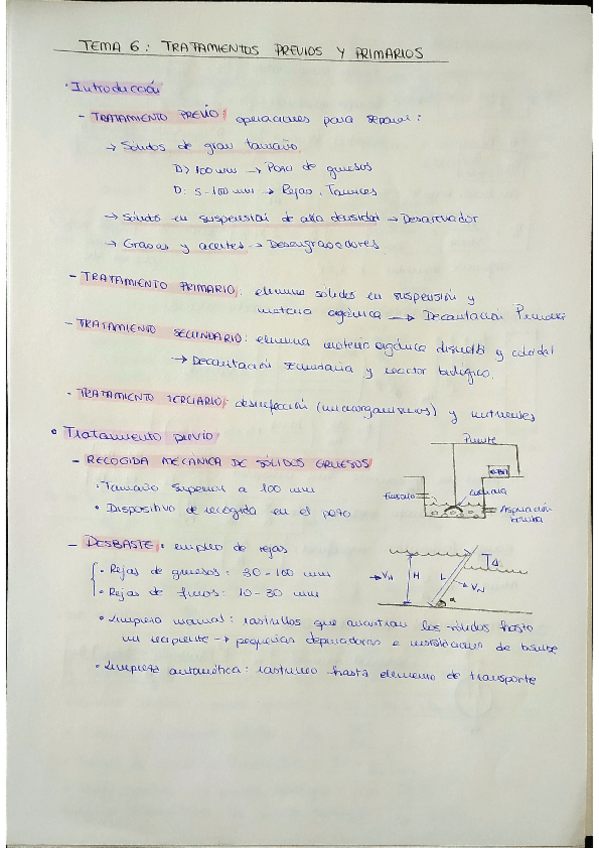 TEMA 6: TRATAMIENTOS PREVIOS Y PRIMARIOS
· Introducción
- TRATAMIENTO PREVIO: operaciones para separar:
→ Sólidos de gran tamaño
D > 100 mm → Pozo de gruesos
D: 5 - 100 mm → Rejas, Tamices
→ Sólidos en suspensión de alta densidad → Desarenador
→ Grasas y aceites → Desengrasadores
- TRATAMIENTO PRIMARIO: elimina sólidos en suspensión y
materia orgánica → Decantación Primaria
- TRATAMIENTO SECUNDARIO: elimina materia orgánica disuelta y coloidal
→ Decantación secundaria y reactor biológico.
- TRATAMIENTO TERCIARIO: desinfección (microorganismos) y nutrientes
· Tratamiento previo
- RECOGIDA MECÁNICA DE SÓLIDOS GRUESOS
· Tamaño superior a 100 mm
· Dispositivo de recogida en el pozo
Puente
cuchara
Aspiración
bomba
- DESBASTE: empleo de rejas
· Rejas de gruesos: 30 - 100 mm
· Rejas de finos: 10 - 30 mm
H
L
· Limpieza manual: rastrillos que arrastran los sólidos hasta
un recipiente → pequeñas depuradoras e instalaciones de bombeo
· Limpieza automática: rastrillo hasta elemento de transporte